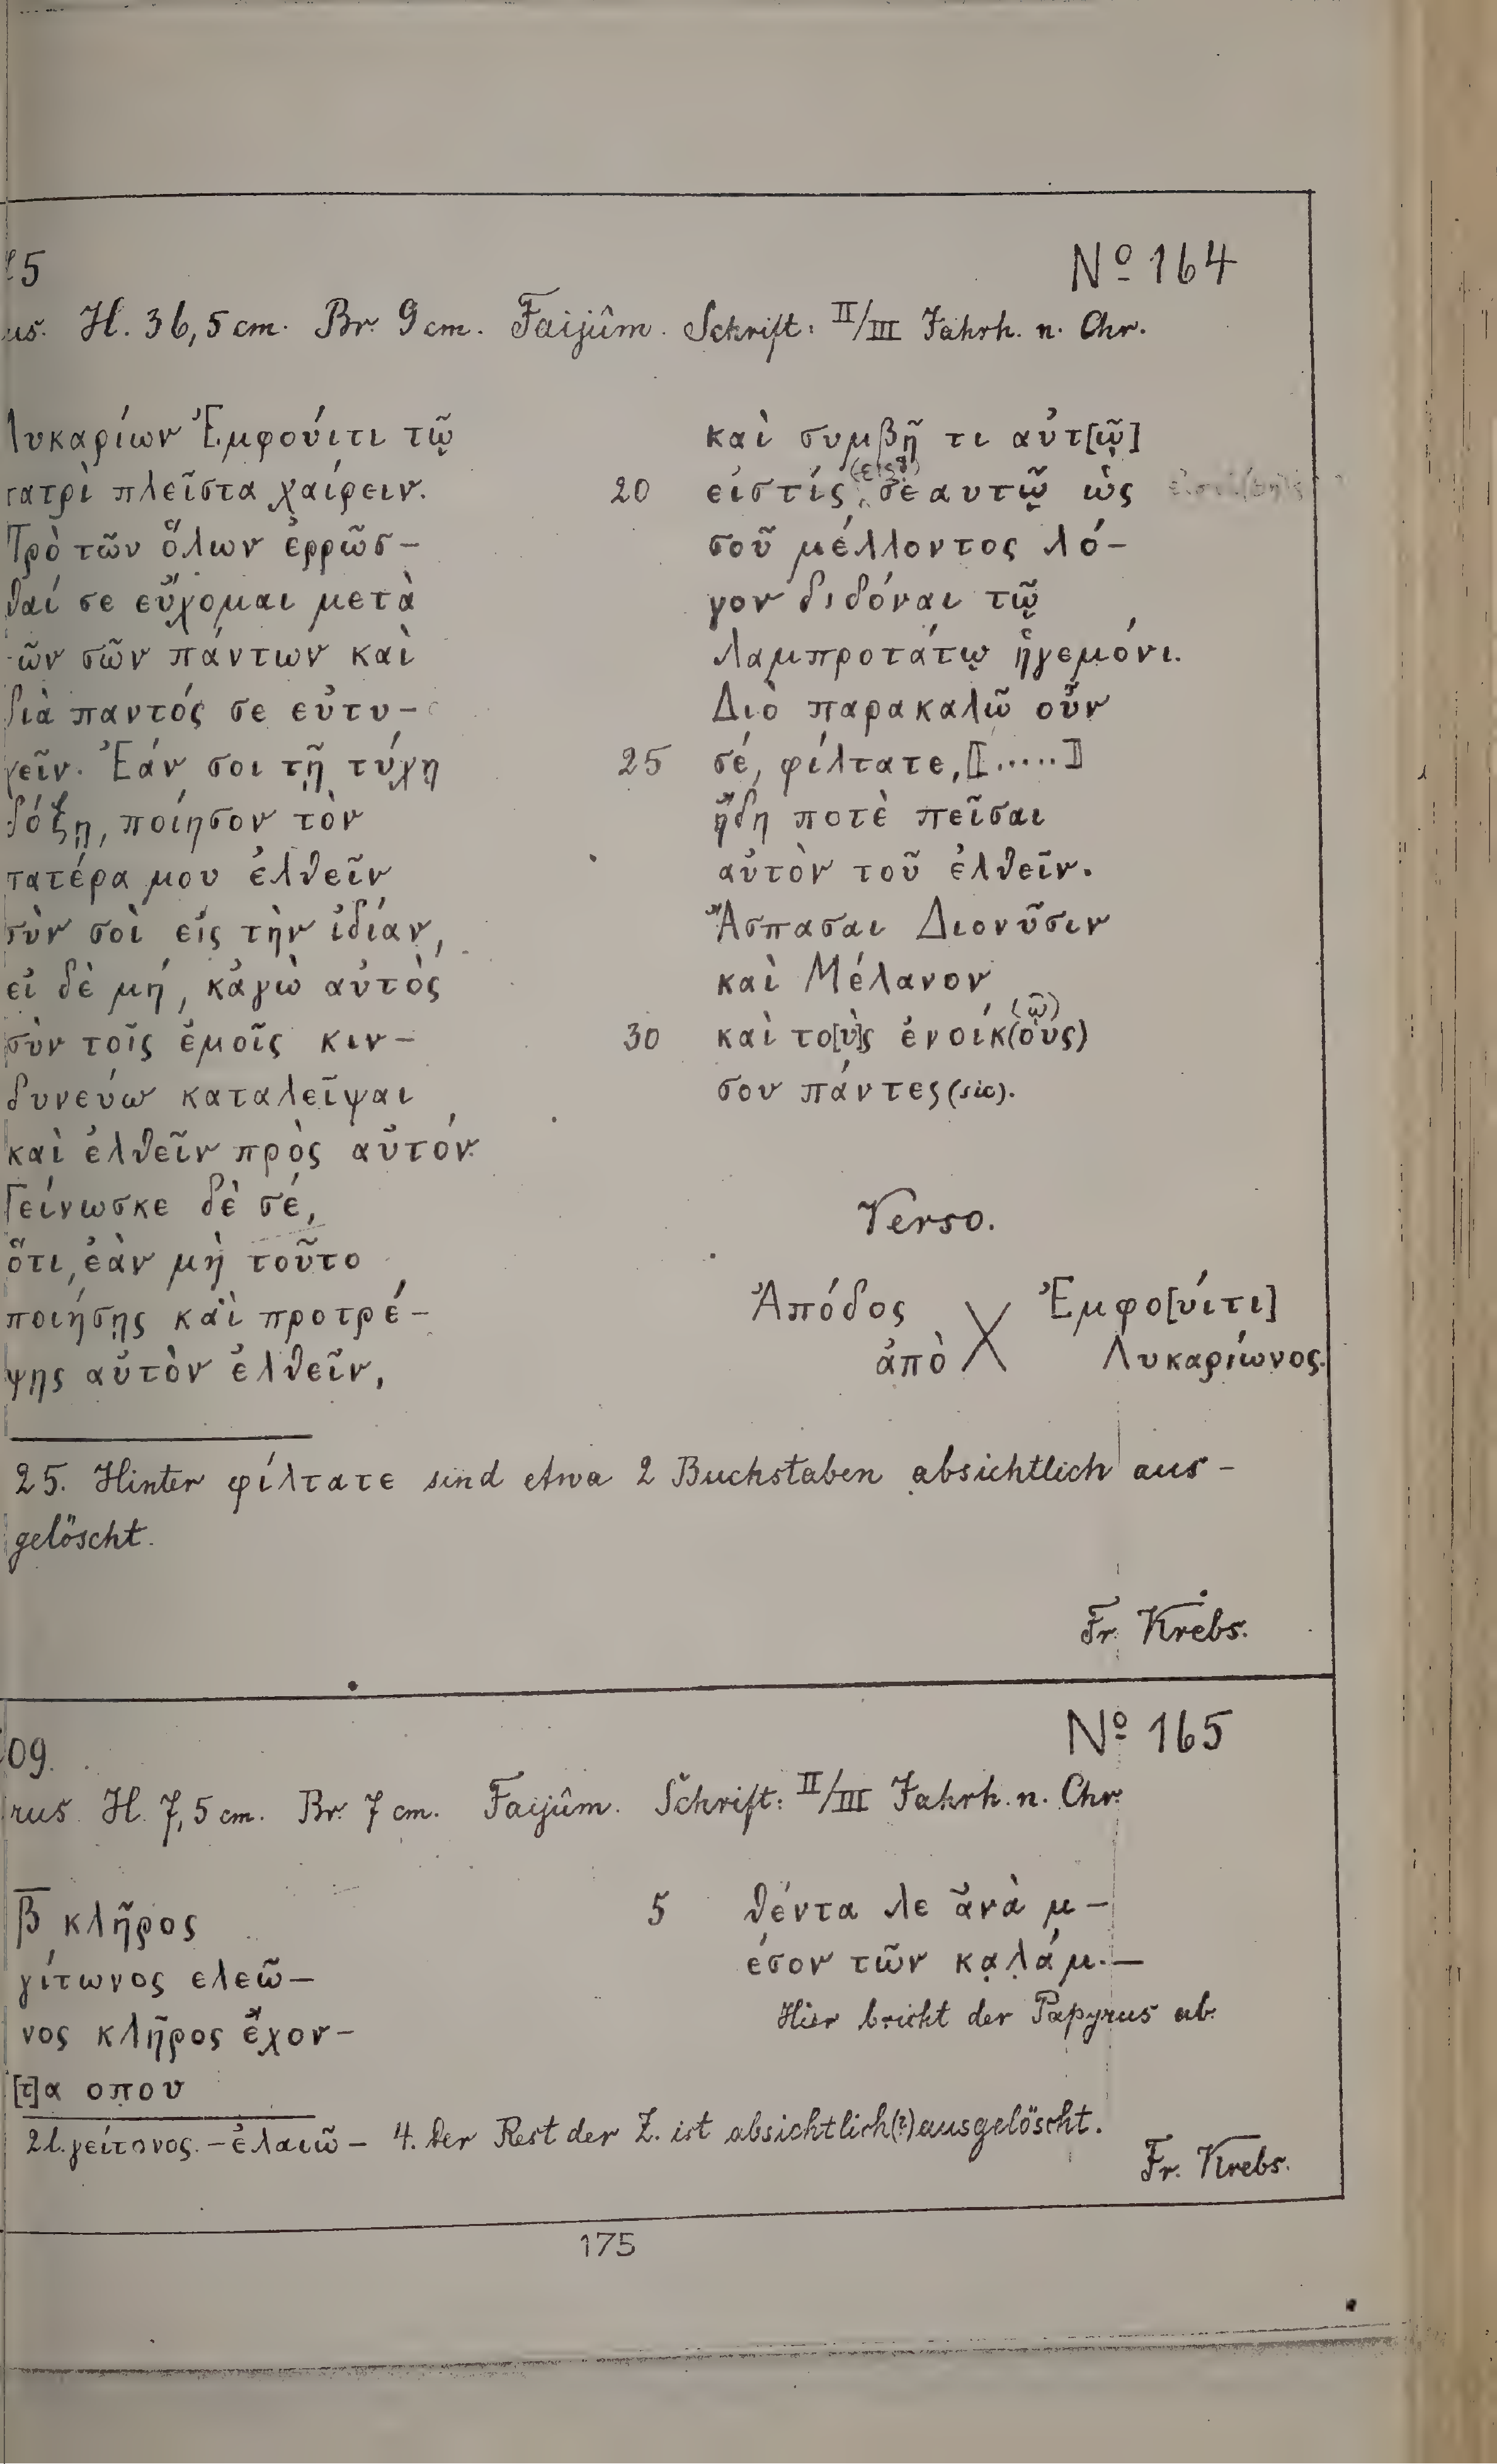 25
Nº 164
us. H. 36,5 cm. Br. 9 cm. Faijûm. Schrift: II/III Jahrh. n. Chr.
Λυκαρίων Ἐμφούιτι τῷ
πατρὶ πλεῖστα χαίρειν.
Πρὸ τῶν ὅλων ἐρρῶσ-
θαί σε εὔχομαι μετὰ
τῶν σῶν πάντων καὶ
διὰ παντός σε εὐτυ-
χεῖν. Ἐάν σοι τῇ τύχῃ
δόξῃ, ποίησον τὸν
πατέρα μου ἐλθεῖν
σὺν σοὶ εἰς τὴν ἰδίαν,
εἰ δὲ μή, κἀγὼ αὐτὸς
σὺν τοῖς ἐμοῖς κιν-
δυνεύω καταλεῖψαι
καὶ ἐλθεῖν πρὸς αὐτόν.
Γείνωσκε δὲ σέ,
ὅτι, ἐὰν μὴ τοῦτο
ποιήσῃς καὶ προτρέ-
ψῃς αὐτὸν ἐλθεῖν,
καὶ συμβῇ τι αὐτ[ῷ]
20 εἰστίς σεαυτῷ ὡς
σοῦ μέλλοντος λό-
γον διδόναι τῷ
λαμπροτάτῳ ἡγεμόνι.
Διὸ παρακαλῶ οὖν
25 σέ, φίλτατε, ⟦.....⟧
ἤδη ποτὲ πεῖσαι
αὐτὸν τοῦ ἐλθεῖν.
Ἄσπασαι Διονῦσιν
καὶ Μέλανον
(ῶ)
30 καὶ το[ὺ]ς ἐνοίκ(ους)
σου πάντες (sic).
Verso.
Ἀπόδος X Ἐμφο[υίτι]
ἀπὸ Λυκαρίωνος.
25. Hinter φίλτατε sind etwa 2 Buchstaben absichtlich aus-
gelöscht.
Fr. Krebs.
Nº 165
09.
rus H. 7,5 cm. Br. 7 cm. Faijûm. Schrift: II/III Jahrh. n. Chr.
β̅ κλῆρος
γίτωνος ελεῶ-
νος κλῆρος ἔχον-
[τ]α οπου
5 θέντα λε ἀνὰ μ-
έσον τῶν καλάμ.-
Hier bricht der Papyrus ab.
2 l. γείτονος. - ἐλαιῶ- 4. Der Rest der Z. ist absichtlich(?) ausgelöscht.
Fr. Krebs.
175